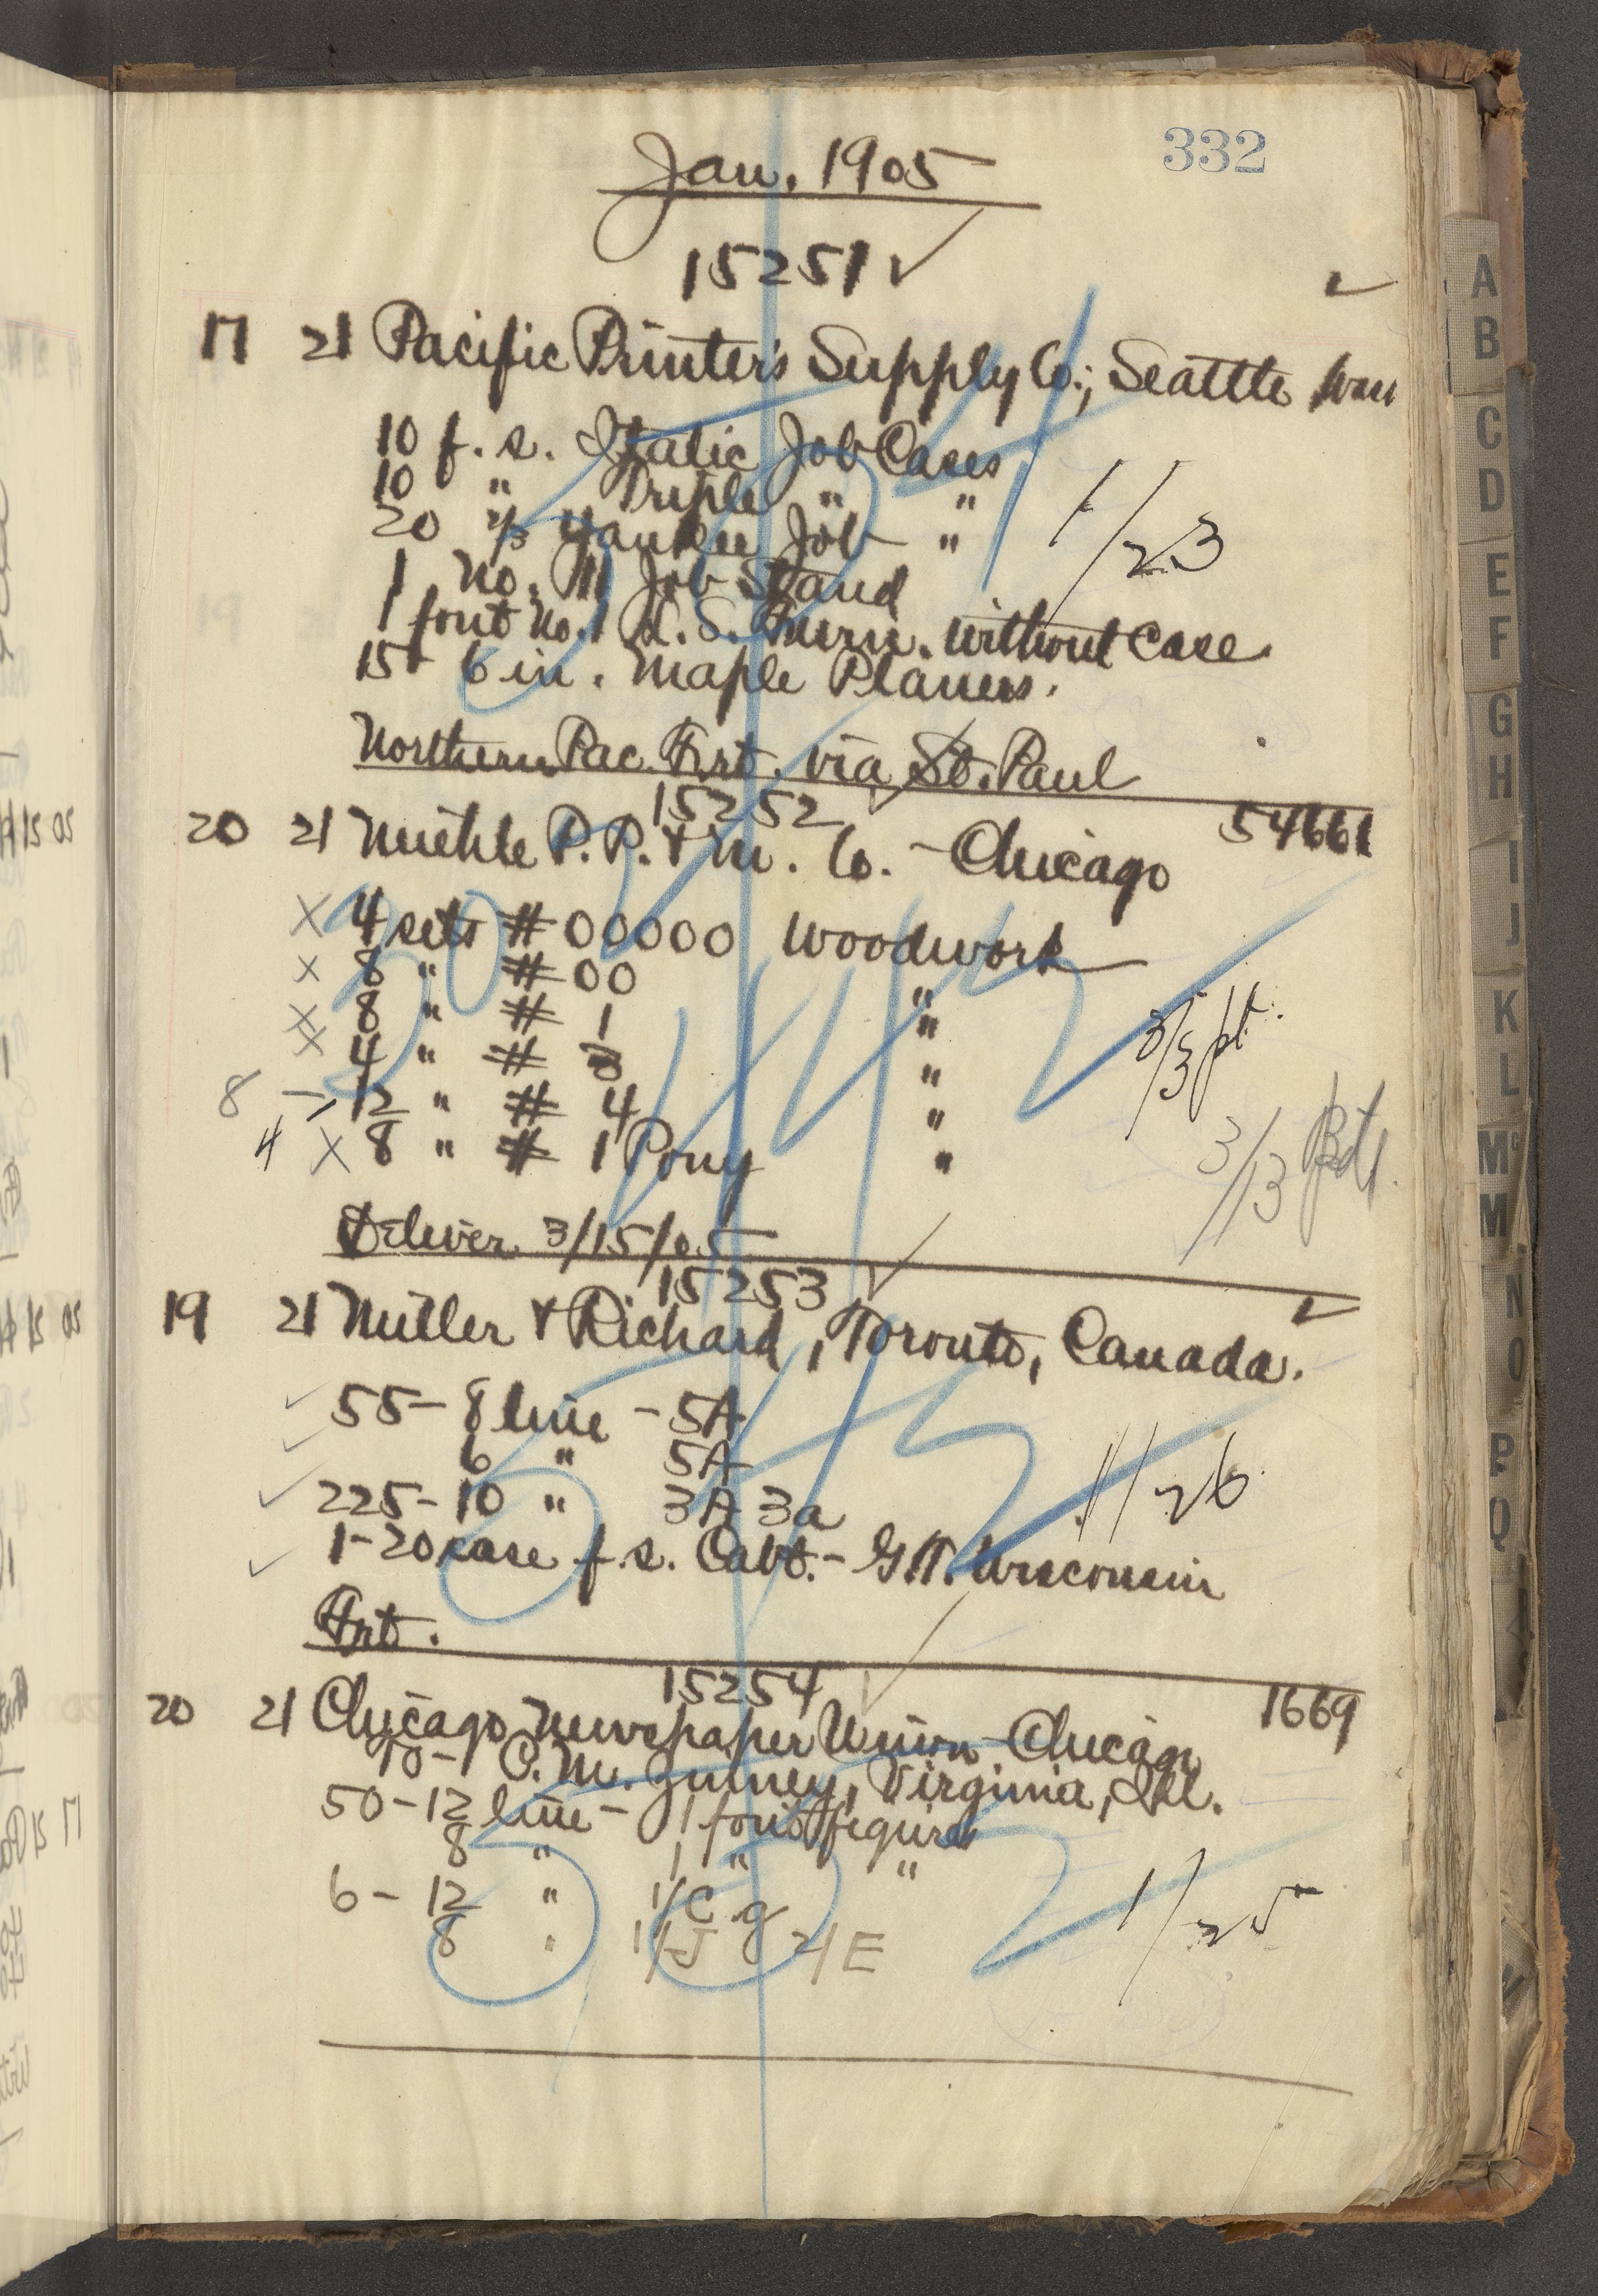 332
Jan. 1905
15251 ✓
17 21 Pacific Printer's Supply Co.; Seattle Wash
10 f. s. Italic Job Cases
10 " Triple " "
20 2/3 Yankee Job "
1/23
1 No. 11 Job Stand
1 font No. 1 L. S. Furn. without case
15 6 in. Maple Planers.
Northern Pac. Frt. via St. Paul
15252
54661
20 21 Miehle P. P. & M. Co. - Chicago
X 4 sets # 00000 Woodwork
X 8 " # 00 "
X 8 " # 1 "
X 4 " # 3 "
8 — 12 " # 4 "
4 X 8 " # 1 Pony "
3/3 pt.
3/13 pt.
Deliver 3/15/05
15253 ✓
19 21 Miller & Richard, Toronto, Canada.
✓ 55 - 8 line - 5A
✓ 6 " 5A
✓ 225 - 10 " 3A 3a
✓ 1 - 20 case f. s. Cabt. - G.T. Wisconsin
1/26
Frt.
15254 ✓
1669
20 21 Chicago Newspaper Union - Chicago
To - C. M. Junney, Virginia, Ill.
50 - 12 line - 1 font figures
8 " 1 " "
6 - 12 " 1/C g
8 " 1/J 2/E
1/25
A
B
C
D
E
F
G
H
I
J
K
L
Mc
M
N
O
P
Q